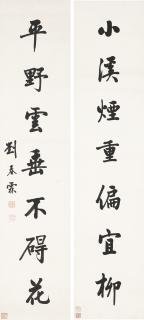 小溪煙重偏宜柳
平野雲垂不礙花
劉春霖